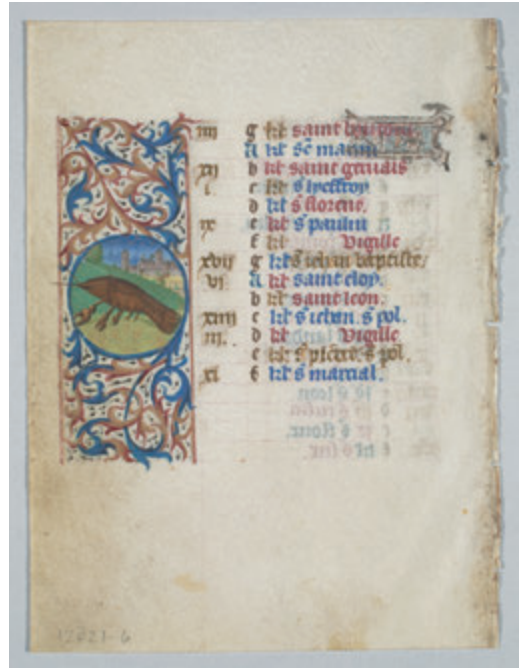 iiii g kl saint
A kl sc
xii b kl saint geruais
i c kl s lyeffroy
d kl s florene.
ix e kl s paulin
f kl Vigille
xvii g kl s iehan baptiste/
vi A kl saint eloy.
b kl saint leon.
xiiii c kl s iehan. s pol.
iii. d kl Vigille
e kl s pierre. s pol.
xi f kl s marcial.
12021-6